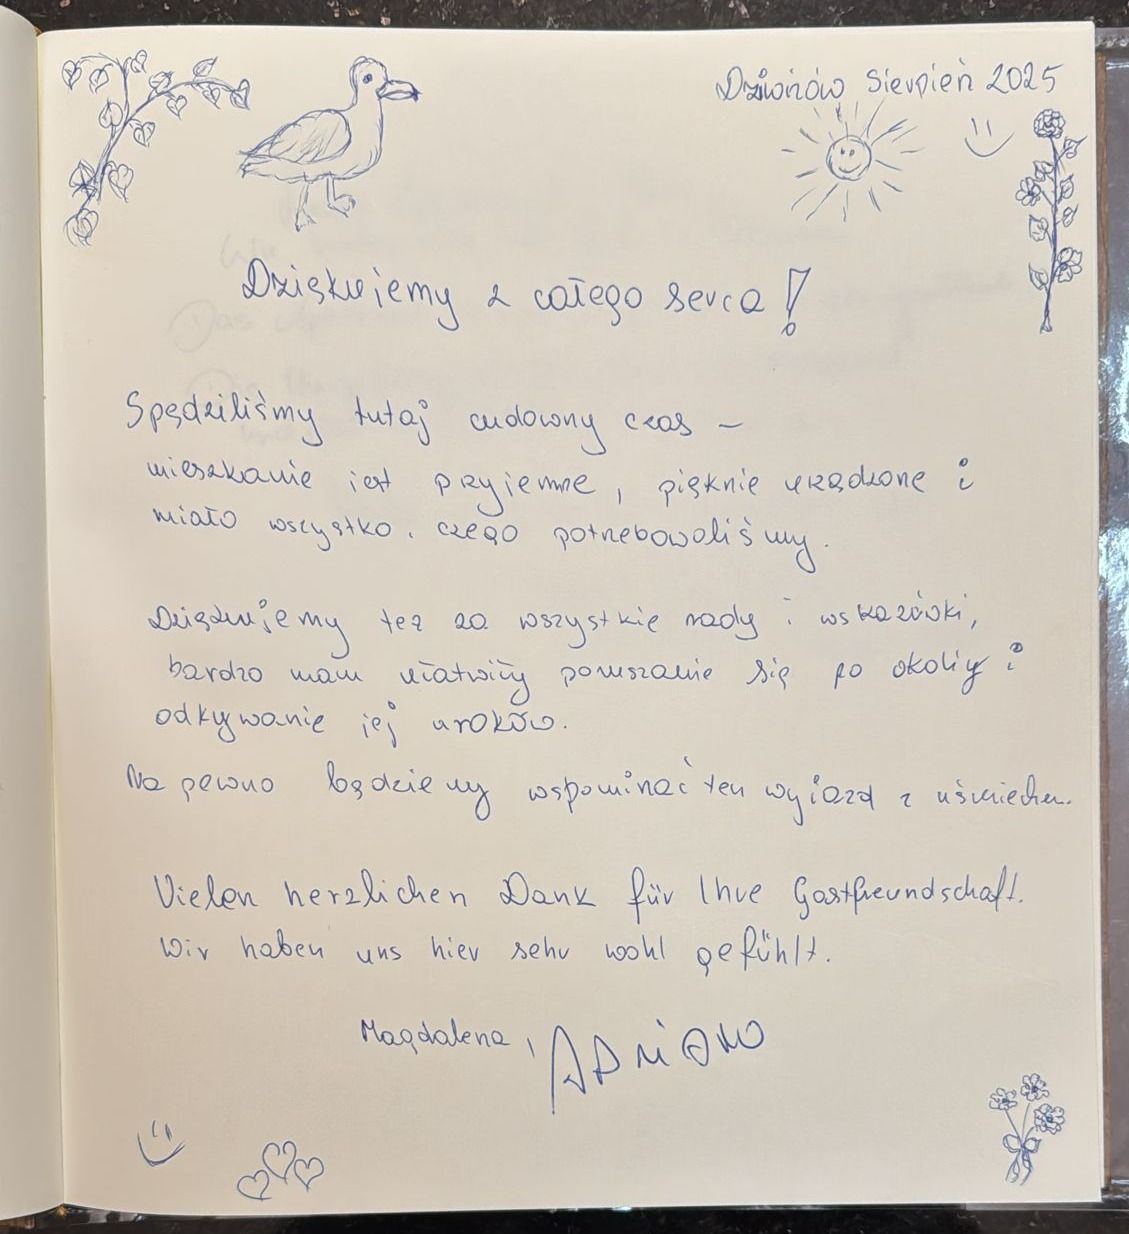 Dziwnów Sierpień 2025
Dziękujemy z całego serca!
Spędziliśmy tutaj cudowny czas –
mieszkanie jest przyjemne, pięknie urządzone i
miało wszystko, czego potrzebowaliśmy.
Dziękujemy też za wszystkie rady i wskazówki,
bardzo nam ułatwiły poruszanie się po okolicy i
odkrywanie jej uroków.
Na pewno będziemy wspominać ten wyjazd z uśmiechem.
Vielen herzlichen Dank für Ihre Gastfreundschaft.
Wir haben uns hier sehr wohl gefühlt.
Magdalena,